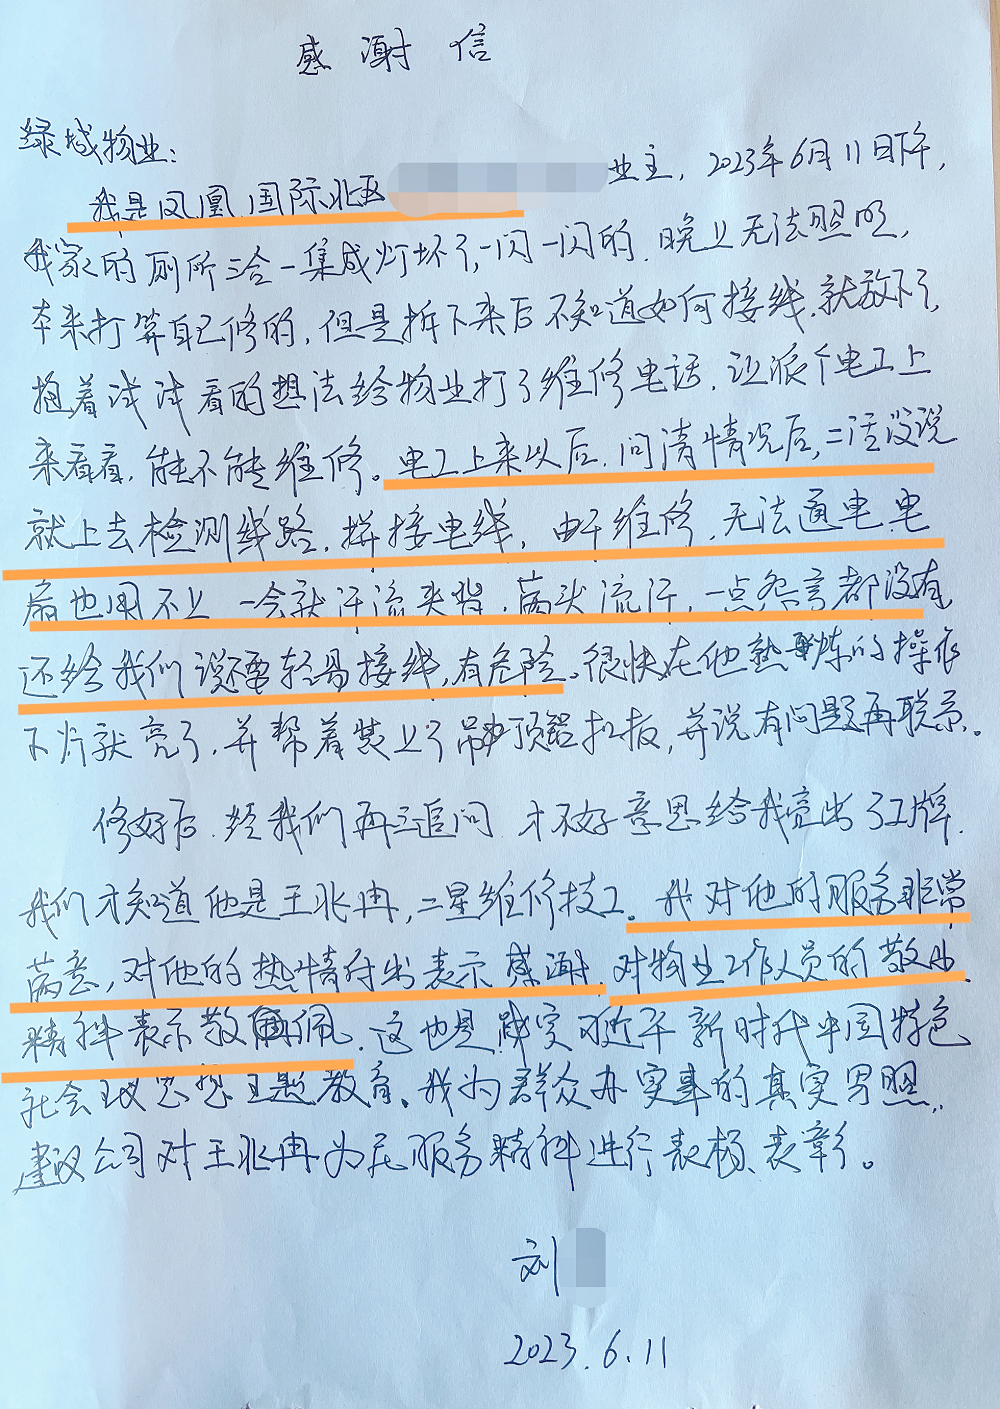 感谢信
绿城物业:
我是凤凰国际北区 业主, 2023年6月11日下午,
我家的厕所三合一集成灯坏了,一闪一闪的,晚上无法照明,
本来打算自己修的,但是拆下来后不知道如何接线,就放下了,
抱着试试看的想法给物业打了维修电话,让派个电工上
来看看,能不能维修。电工上来以后,问清情况后,二话没说
就上去检测线路,拼接电线,由于维修,无法通电,电
扇也用不上,一会就汗流夹背,满头流汗,一点怨言都没有,
还给我们说不要轻易接线,有危险。很快在他熟练的操作
下灯就亮了,并帮着装上了吊顶铝扣板,并说有问题再联系。
修好后,经我们再三追问,才不好意思给我亮出了工牌,
我们才知道他是王兆冉,二星维修技工。我对他的服务非常
满意,对他的热情付出表示感谢,对物业工作人员的敬业
精神表示敬佩,这也是践实习近平新时代中国特色
社会主义思想主题教育、我为群众办实事的真实写照,
建议公司对王兆冉为民服务精神进行表杨、表彰。
刘
2023.6.11